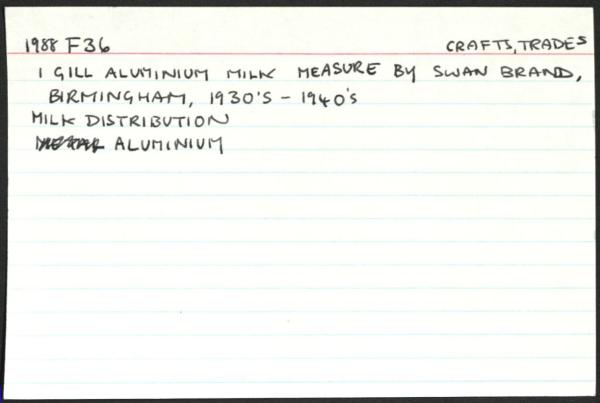 1988 F36 CRAFTS, TRADES
1 GILL ALUMINIUM MILK MEASURE BY SWAN BRAND,
BIRMINGHAM, 1930'S - 1940'S
MILK DISTRIBUTION
ALUMINIUM